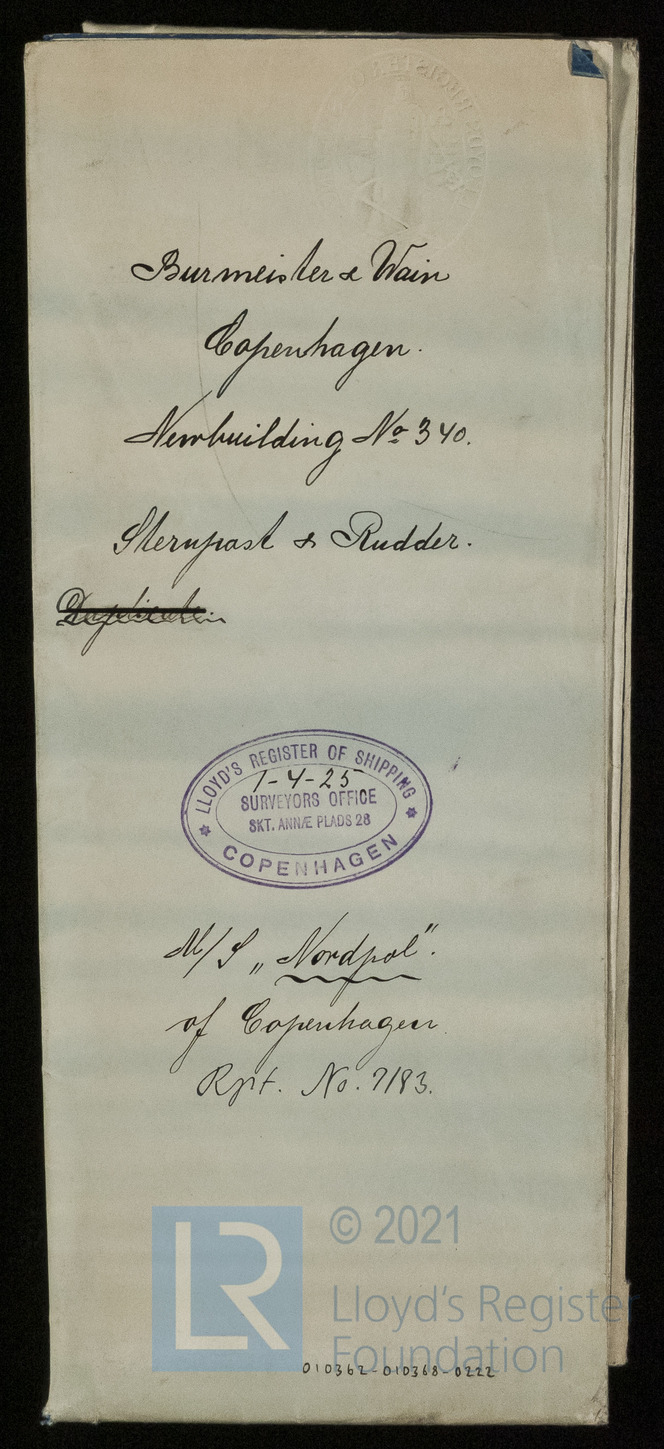 Burmeister & Wain
Copenhagen.
Newbuilding No 340.
Sternpost & Rudder.
LLOYD'S REGISTER OF SHIPPING
1-4-25
SURVEYORS OFFICE
SKT. ANNÆ PLADS 28
COPENHAGEN
M/S „Nordpol".
of Copenhagen
Rpt. No. 7183.
LR
© 2021
Lloyd's Register
Foundation
010362-010368-0222